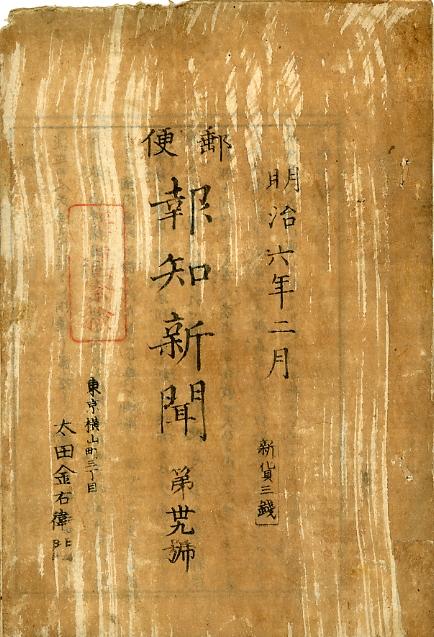 明治六年二月
新貨三錢
郵便
報知新聞
第卅九號
東亰横山町三丁目
太田金右衛門